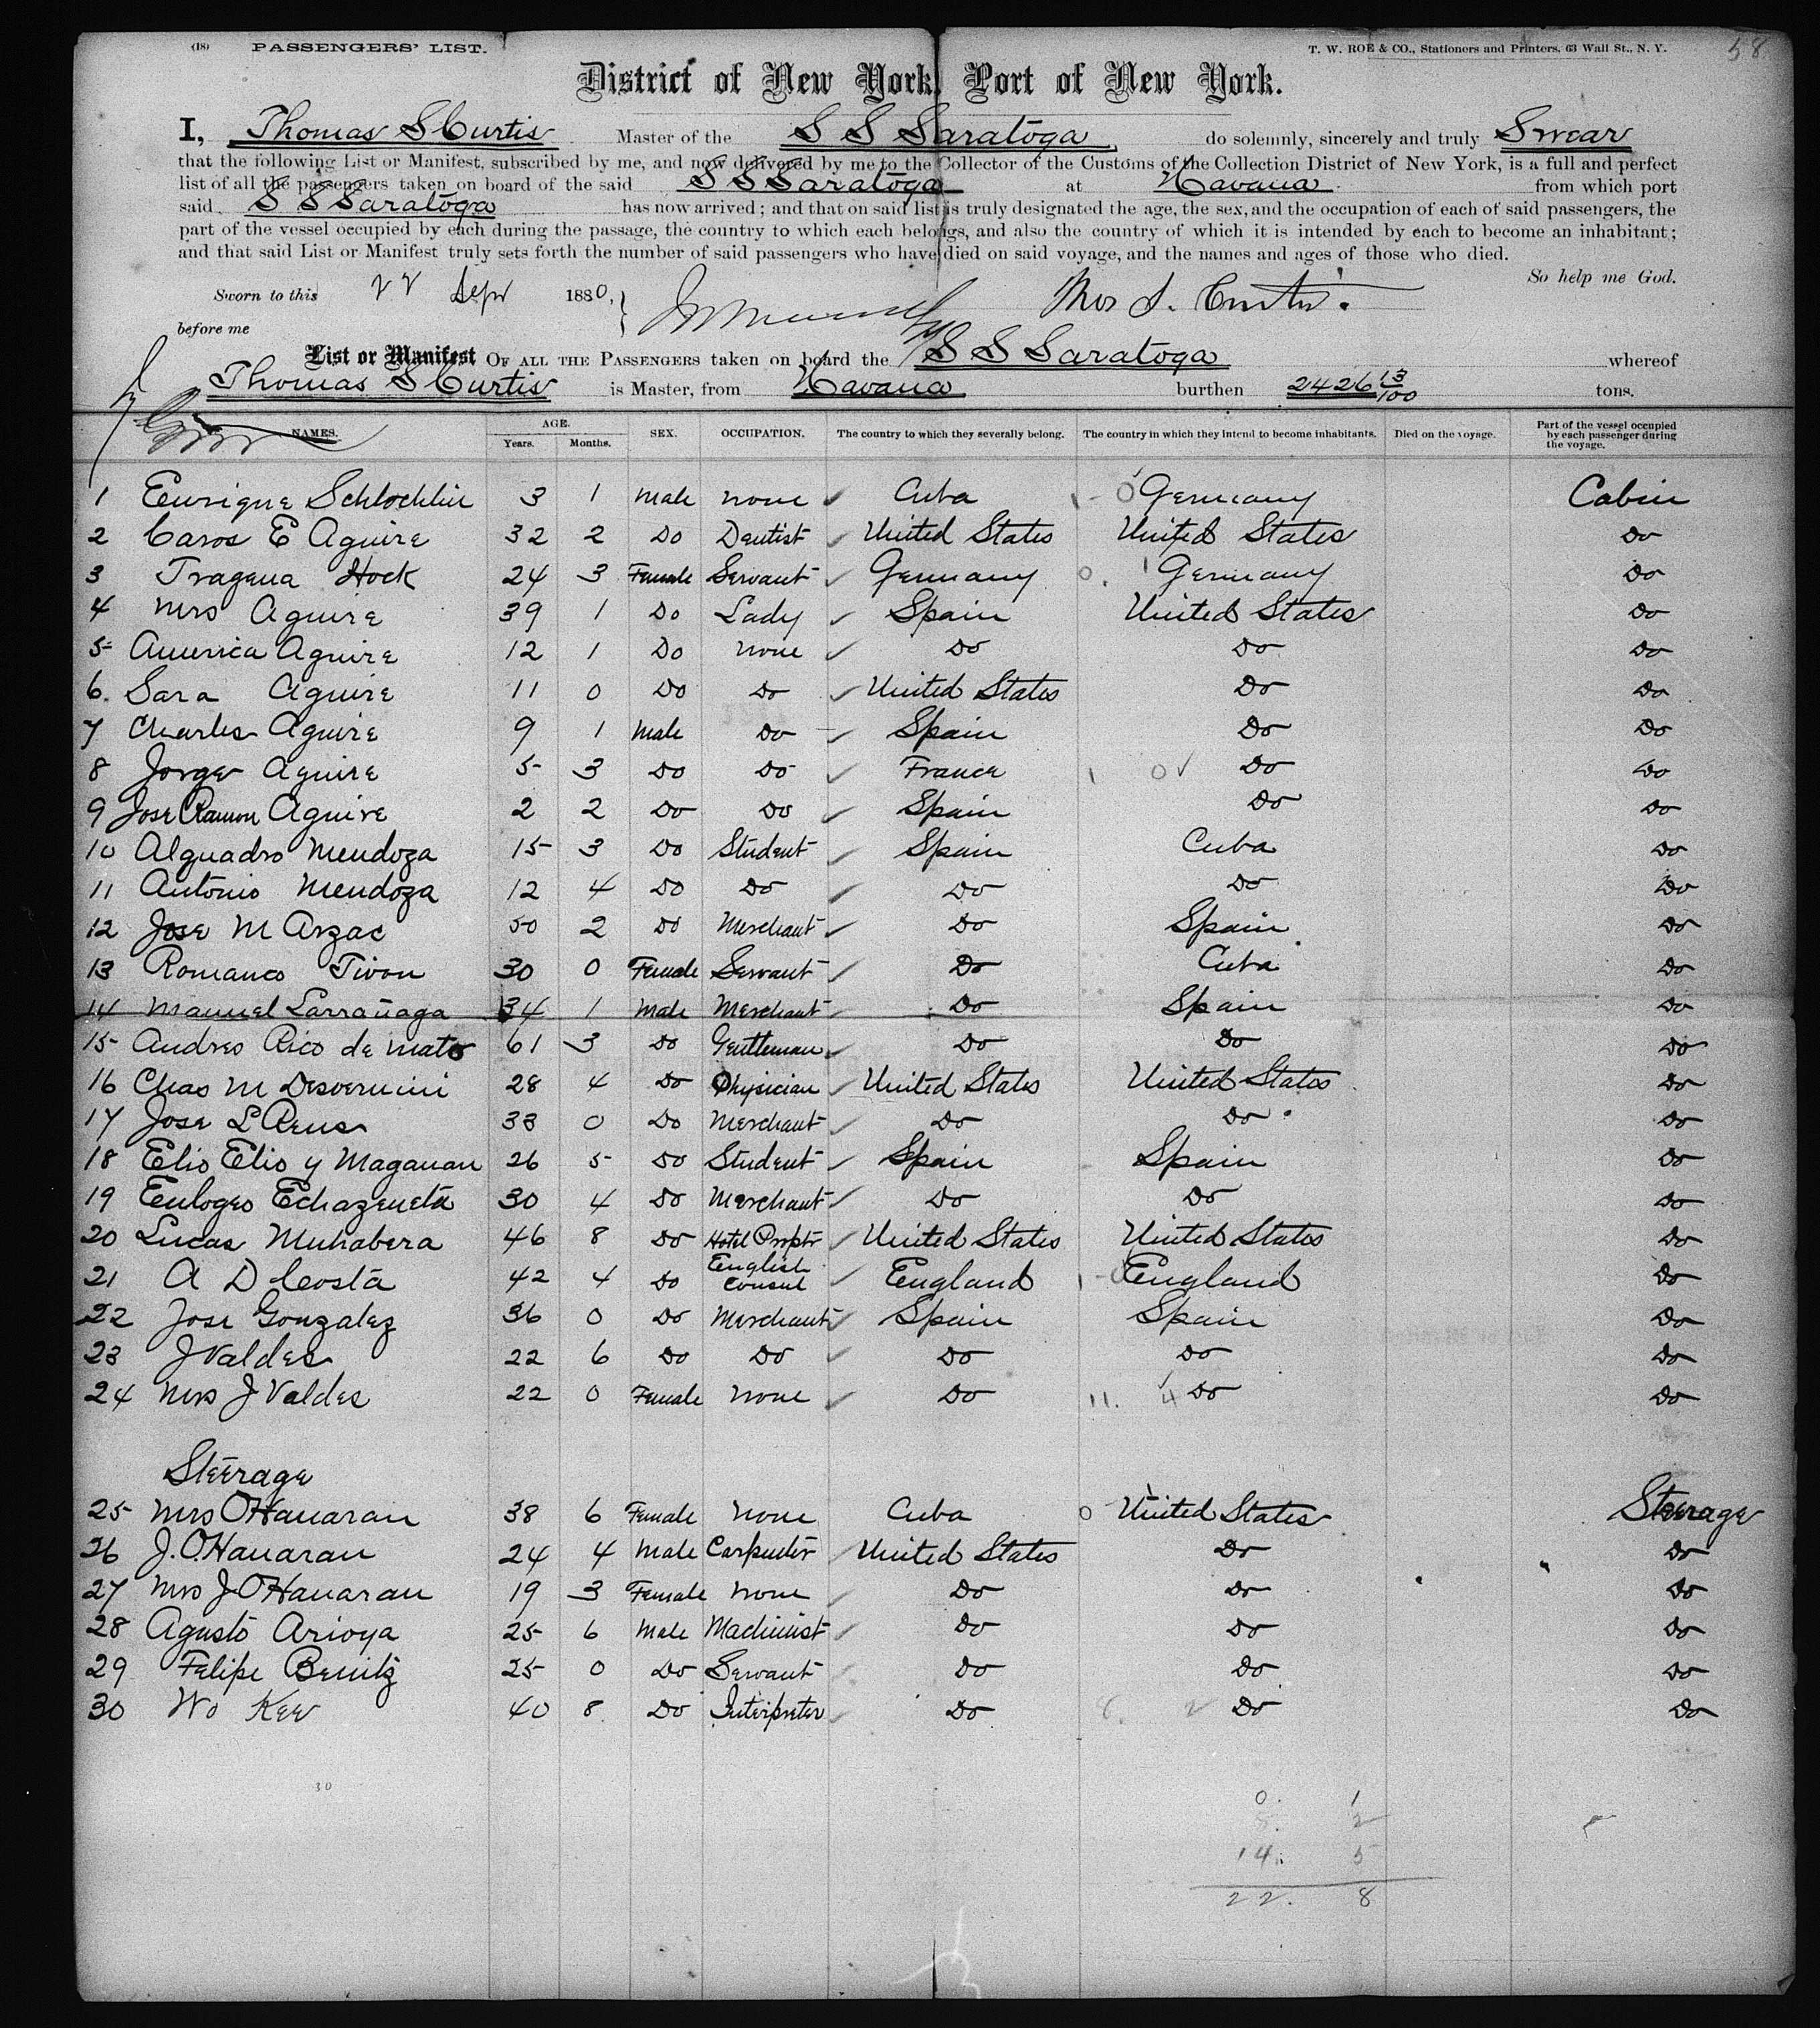 (18) PASSENGERS' LIST. T. W. ROE & CO., Stationers and Printers, 63 Wall St., N. Y. 58
District of New York, Port of New York.
I, Thomas S Curtis Master of the S S Saratoga do solemnly, sincerely and truly Swear
that the following List or Manifest, subscribed by me, and now delivered by me to the Collector of the Customs of the Collection District of New York, is a full and perfect
list of all the passengers taken on board of the said S S Saratoga at Havana from which port
said S S Saratoga has now arrived; and that on said list is truly designated the age, the sex, and the occupation of each of said passengers, the
part of the vessel occupied by each during the passage, the country to which each belongs, and also the country of which it is intended by each to become an inhabitant;
and that said List or Manifest truly sets forth the number of said passengers who have died on said voyage, and the names and ages of those who died.
So help me God.
Sworn to this 22 Sept 1880, Thos S. Curtis.
before me
List or Manifest OF ALL THE PASSENGERS taken on board the S S Saratoga whereof
Thomas S Curtis is Master, from Havana burthen 2426 13/100 tons.
NAMES. AGE. Years. Months. SEX. OCCUPATION. The country to which they severally belong. The country in which they intend to become inhabitants. Died on the voyage. Part of the vessel occupied by each passenger during the voyage.
1 Enrique Schlochlin 3 1 Male None Cuba Germany Cabin
2 Caros E Aguire 32 2 Do Dentist United States United States Do
3 Tragena Hock 24 3 Female Servant Germany Germany Do
4 Mrs Aguire 39 1 Do Lady Spain United States Do
5 America Aguire 12 1 Do None Do Do Do
6. Sara Aguire 11 0 Do Do United States Do Do
7 Charles Aguire 9 1 Male Do Spain Do Do
8 Jorge Aguire 5 3 Do Do France Do Do
9 Jose Ramon Aguire 2 2 Do Do Spain Do Do
10 Alguadro Mendoza 15 3 Do Student Spain Cuba Do
11 Antonio Mendoza 12 4 Do Do Do Do Do
12 Jose M Arzac 50 2 Do Merchant Do Spain Do
13 Romanco Tivon 30 0 Female Servant Do Cuba Do
14 Manuel Larrañaga 34 1 Male Merchant Do Spain Do
15 Andres Rico de Mato 61 3 Do Gentleman Do Do Do
16 Chas M Desvernini 28 4 Do Physician United States United States Do
17 Jose L Reus 33 0 Do Merchant Do Do Do
18 Elio Elio y Maganan 26 5 Do Student Spain Spain Do
19 Eulogeo Echazeneta 30 4 Do Merchant Do Do Do
20 Lucas Muhabera 46 8 Do Hotel Proptr United States United States Do
21 A D Costa 42 4 Do English Consul England England Do
22 Jose Gonzalez 36 0 Do Merchant Spain Spain Do
23 J Valdes 22 6 Do Do Do Do Do
24 Mrs J Valdes 22 0 Female None Do Do Do
Steerage
25 Mrs OHanaran 38 6 Female None Cuba United States Steerage
26 J. OHanaran 24 4 Male Carpenter United States Do Do
27 Mrs J OHanaran 19 3 Female None Do Do Do
28 Agusto Arioya 25 6 Male Machinist Do Do Do
29 Felipe Benitz 25 0 Do Servant Do Do Do
30 Wo Kee 40 8 Do Interpreter Do Do Do
30
0. 1
8. 2
14. 5
22. 8